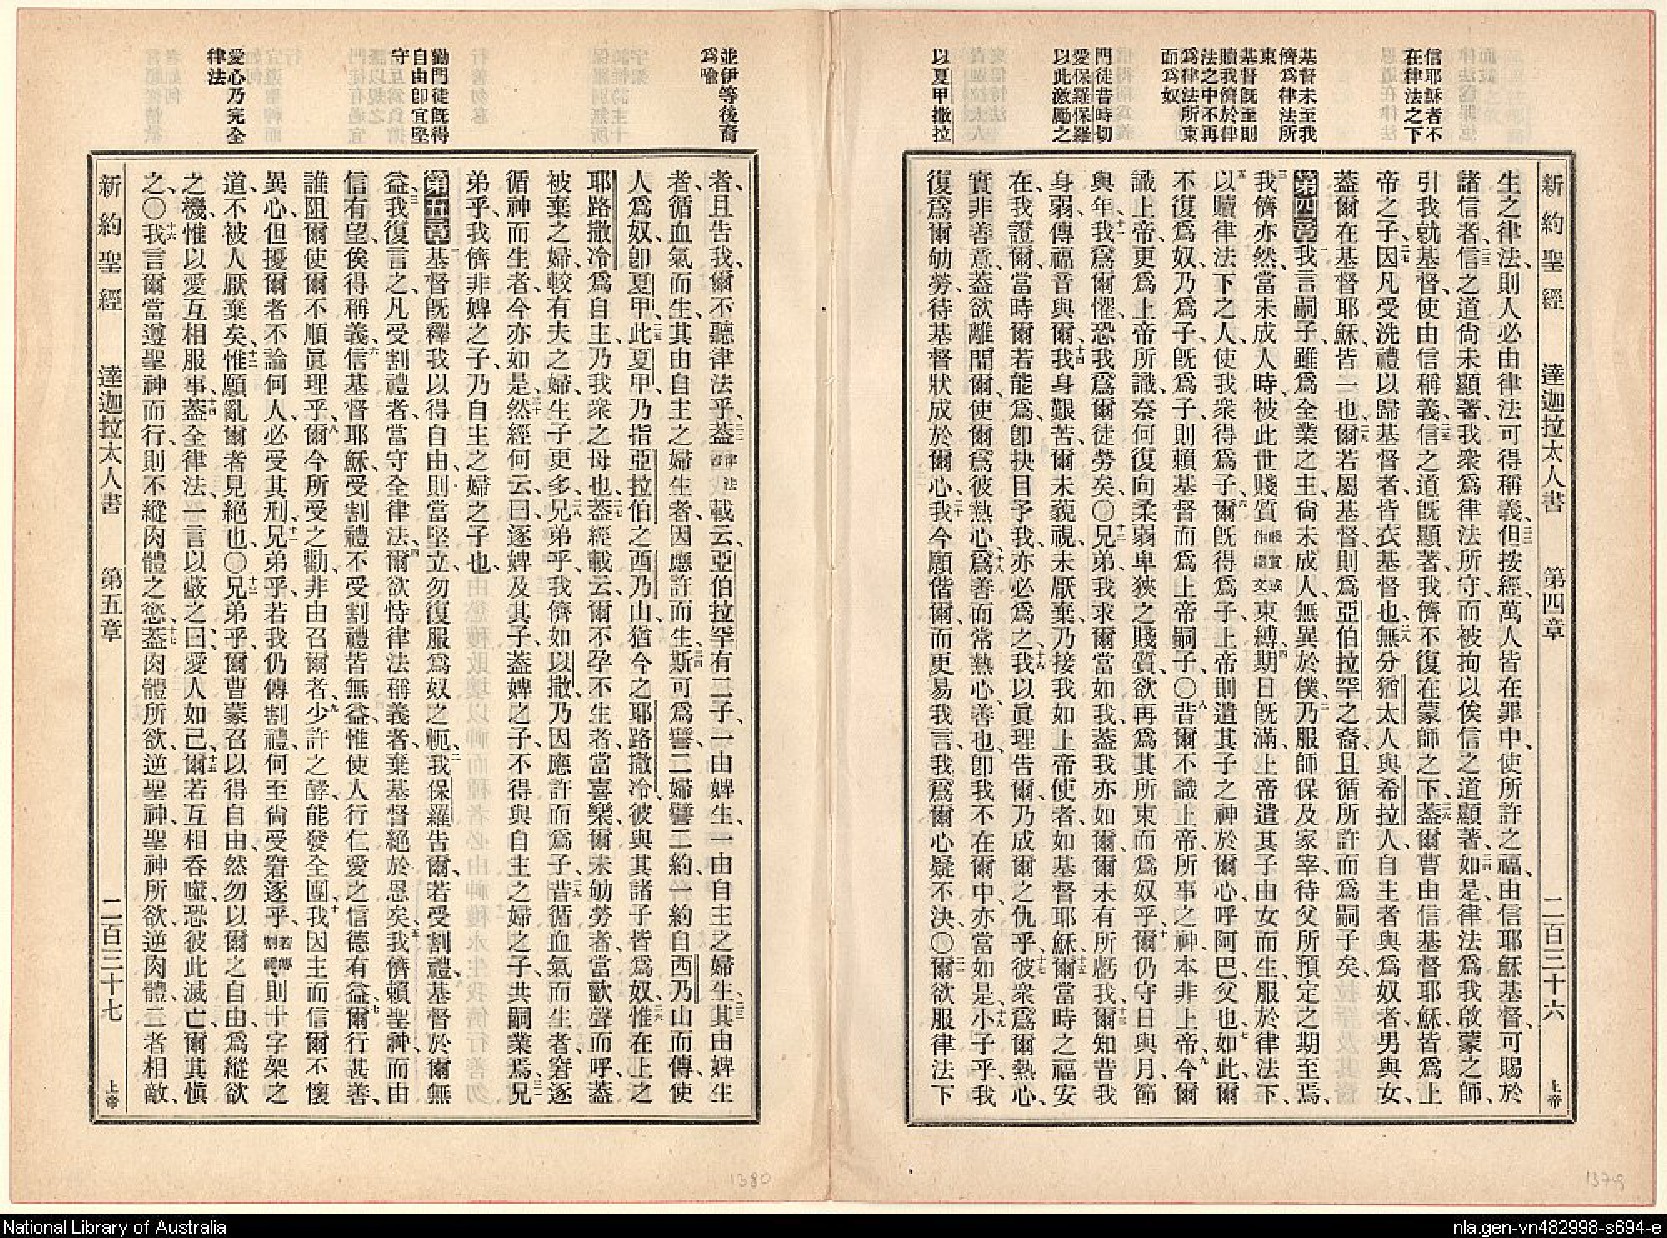 信耶穌者不
在律法之下
基督未至我
儕爲律法所
束
基督既至則
贖我儕於律
法之中不再
爲律法所束
而爲奴
門徒昔時切
愛保羅保羅
以此激勵之
以夏甲撒拉
新約聖經 達迦拉太人書 第四章 二百三十六 上帝
生之律法、則人必由律法可得稱義、但按經、萬人皆在罪中、使所許之福、由信耶穌基督、可賜於
諸信者、信之道尙未顯著、我衆爲律法所守、而被拘以俟信之道顯著、如是律法爲我啟蒙之師、
引我就基督、使由信稱義、信之道既顯著、我儕不復在蒙師之下、蓋爾曹由信基督耶穌、皆爲上
帝之子、因凡受洗禮以歸基督者、皆衣基督也、無分猶太人與希拉人、自主者與爲奴者、男與女、
蓋爾在基督耶穌、皆一也、爾若屬基督、則爲亞伯拉罕之裔、且循所許而爲嗣子矣、
第四章我言嗣子、雖爲全業之主、尙未成人、無異於僕、乃服師保及家宰、待父所預定之期至焉、
我儕亦然、當未成人時、被此世賤質束縛、期日既滿、上帝遣其子、由女而生、服於律法下、
以贖律法下之人、使我衆得爲子、爾既得爲子、上帝則遣其子之神於爾心、呼阿巴父也、如此爾
不復爲奴、乃爲子、既爲子、則賴基督而爲上帝嗣子、〇昔爾不識上帝、所事之神、本非上帝、今爾
識上帝、更爲上帝所識、奈何復向柔弱卑狹之賤質、欲再爲其所束而爲奴乎、爾仍守日與月節
與年、我爲爾懼、恐我爲爾徒勞矣、〇兄弟、我求爾當如我、蓋我亦如爾、爾未有所虧我、爾知昔我
身弱、傳福音與爾、我身艱苦、爾未藐視、未厭棄、乃接我如上帝使者、如基督耶穌、爾當時之福安
在、我證爾當時爾若能爲、卽抉目予我、亦必爲之、我以眞理告爾、乃成爾之仇乎、彼衆爲爾熱心、
實非善意、蓋欲離間爾、使爾爲彼熱心、爲善而常熱心、善也、卽我不在爾中、亦當如是、小子乎、我
復爲爾劬勞、待基督狀成於爾心、我今願偕爾、而更易我言、我爲爾心疑不決、〇爾欲服律法下
並伊等後裔
爲喻
勸門徒既得
自由卽宜堅
守
愛心乃完全
律法
者、且告我、爾不聽律法乎、蓋律法書載云、亞伯拉罕有二子、一由婢生、一由自主之婦生、其由婢生
者、循血氣而生、其由自主之婦生者、因應許而生、斯可爲譬、二婦譬二約、一約自西乃山而傳、使
人爲奴、卽夏甲、此夏甲乃指亞拉伯之西乃山、猶今之耶路撒冷、彼與其諸子皆爲奴、惟在上之
耶路撒冷爲自主、乃我衆之母也、蓋經載云、爾不孕不生者當喜樂、爾未劬勞者當歡聲而呼、蓋
被棄之婦、較有夫之婦、生子更多、兄弟乎、我儕如以撒、乃因應許而爲子、昔循血氣而生者、窘逐
循神而生者、今亦如是、然經何云、曰、逐婢及其子、蓋婢之子、不得與自主之婦之子、共嗣業焉、兄
弟乎、我儕非婢之子、乃自主之婦之子也、
第五章基督既釋我以得自由、則當堅立、勿復服爲奴之軛、我保羅告爾、爾若受割禮、基督於爾無
益、我復言之、凡受割禮者、當守全律法、爾欲恃律法稱義者、棄基督、絕於恩矣、我儕賴聖神而由
信有望、俟得稱義、信基督耶穌、受割禮不受割禮、皆無益、惟使人行仁愛之信德有益、爾行甚善、
誰阻爾、使爾不順眞理乎、爾今所受之勸、非由召爾者、少許之酵、能發全團、我因主而信爾不懷
異心、但擾爾者、不論何人、必受其刑、兄弟乎、若我仍傳割禮、何至尙受窘逐乎、若傳割禮則十字架之
道、不被人厭棄矣、惟願亂爾者見絕也、〇兄弟乎、爾曹蒙召以得自由、然勿以爾之自由、爲縱欲
之機、惟以愛互相服事、蓋全律法、一言以蔽之、曰、愛人如己、爾若互相吞噬、恐彼此滅亡、爾其愼
之、〇我言爾當遵聖神而行、則不縱肉體之慾、蓋肉體所欲逆聖神、聖神所欲逆肉體、二者相敵、
新約聖經 達迦拉太人書 第五章 二百三十七 上帝
1380
1379
National Library of Australia
nla.gen-vn482998-s694-e